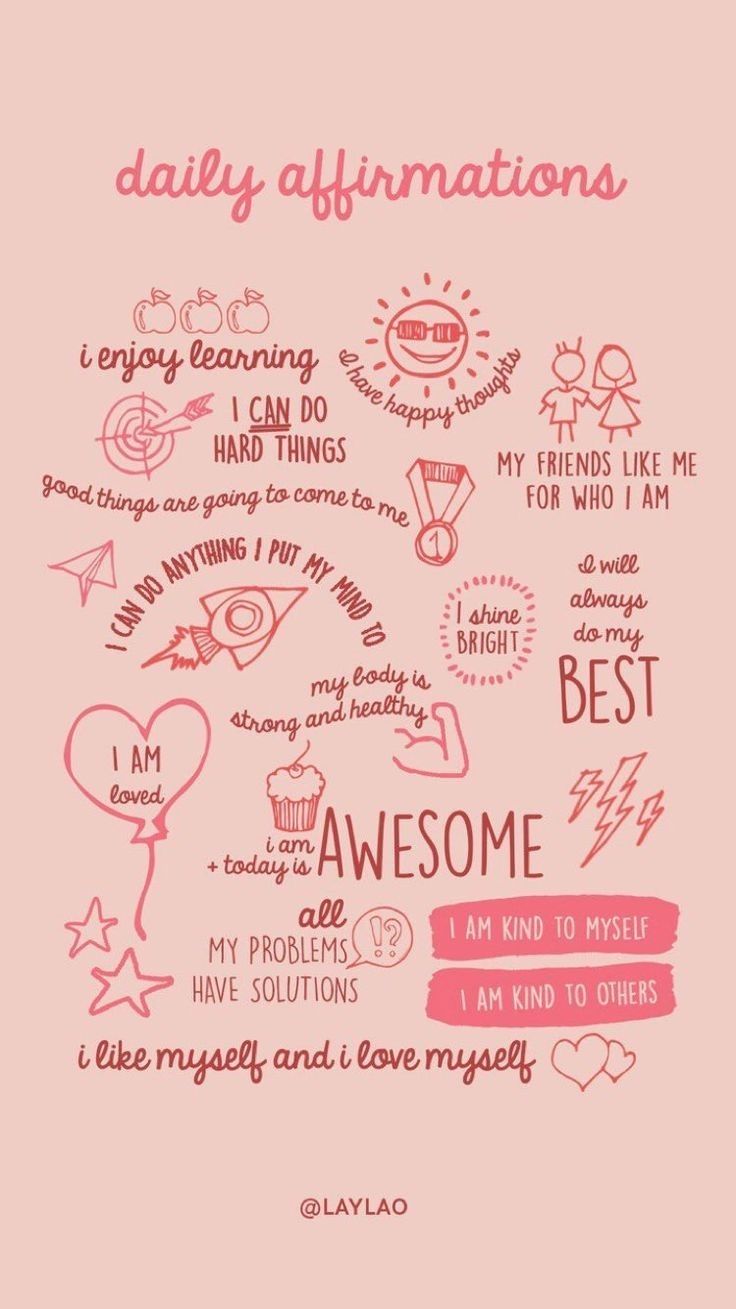 daily affirmations
i enjoy learning
I have happy thoughts
I CAN DO
HARD THINGS
MY FRIENDS LIKE ME
FOR WHO I AM
good things are going to come to me
1
I CAN DO ANYTHING I PUT MY MIND TO
I shine
BRIGHT
I will
always
do my
BEST
my body is
strong and healthy
I AM
loved
i am
+ today is
AWESOME
all
MY PROBLEMS
HAVE SOLUTIONS
!?
I AM KIND TO MYSELF
I AM KIND TO OTHERS
i like myself and i love myself
@LAYLAO